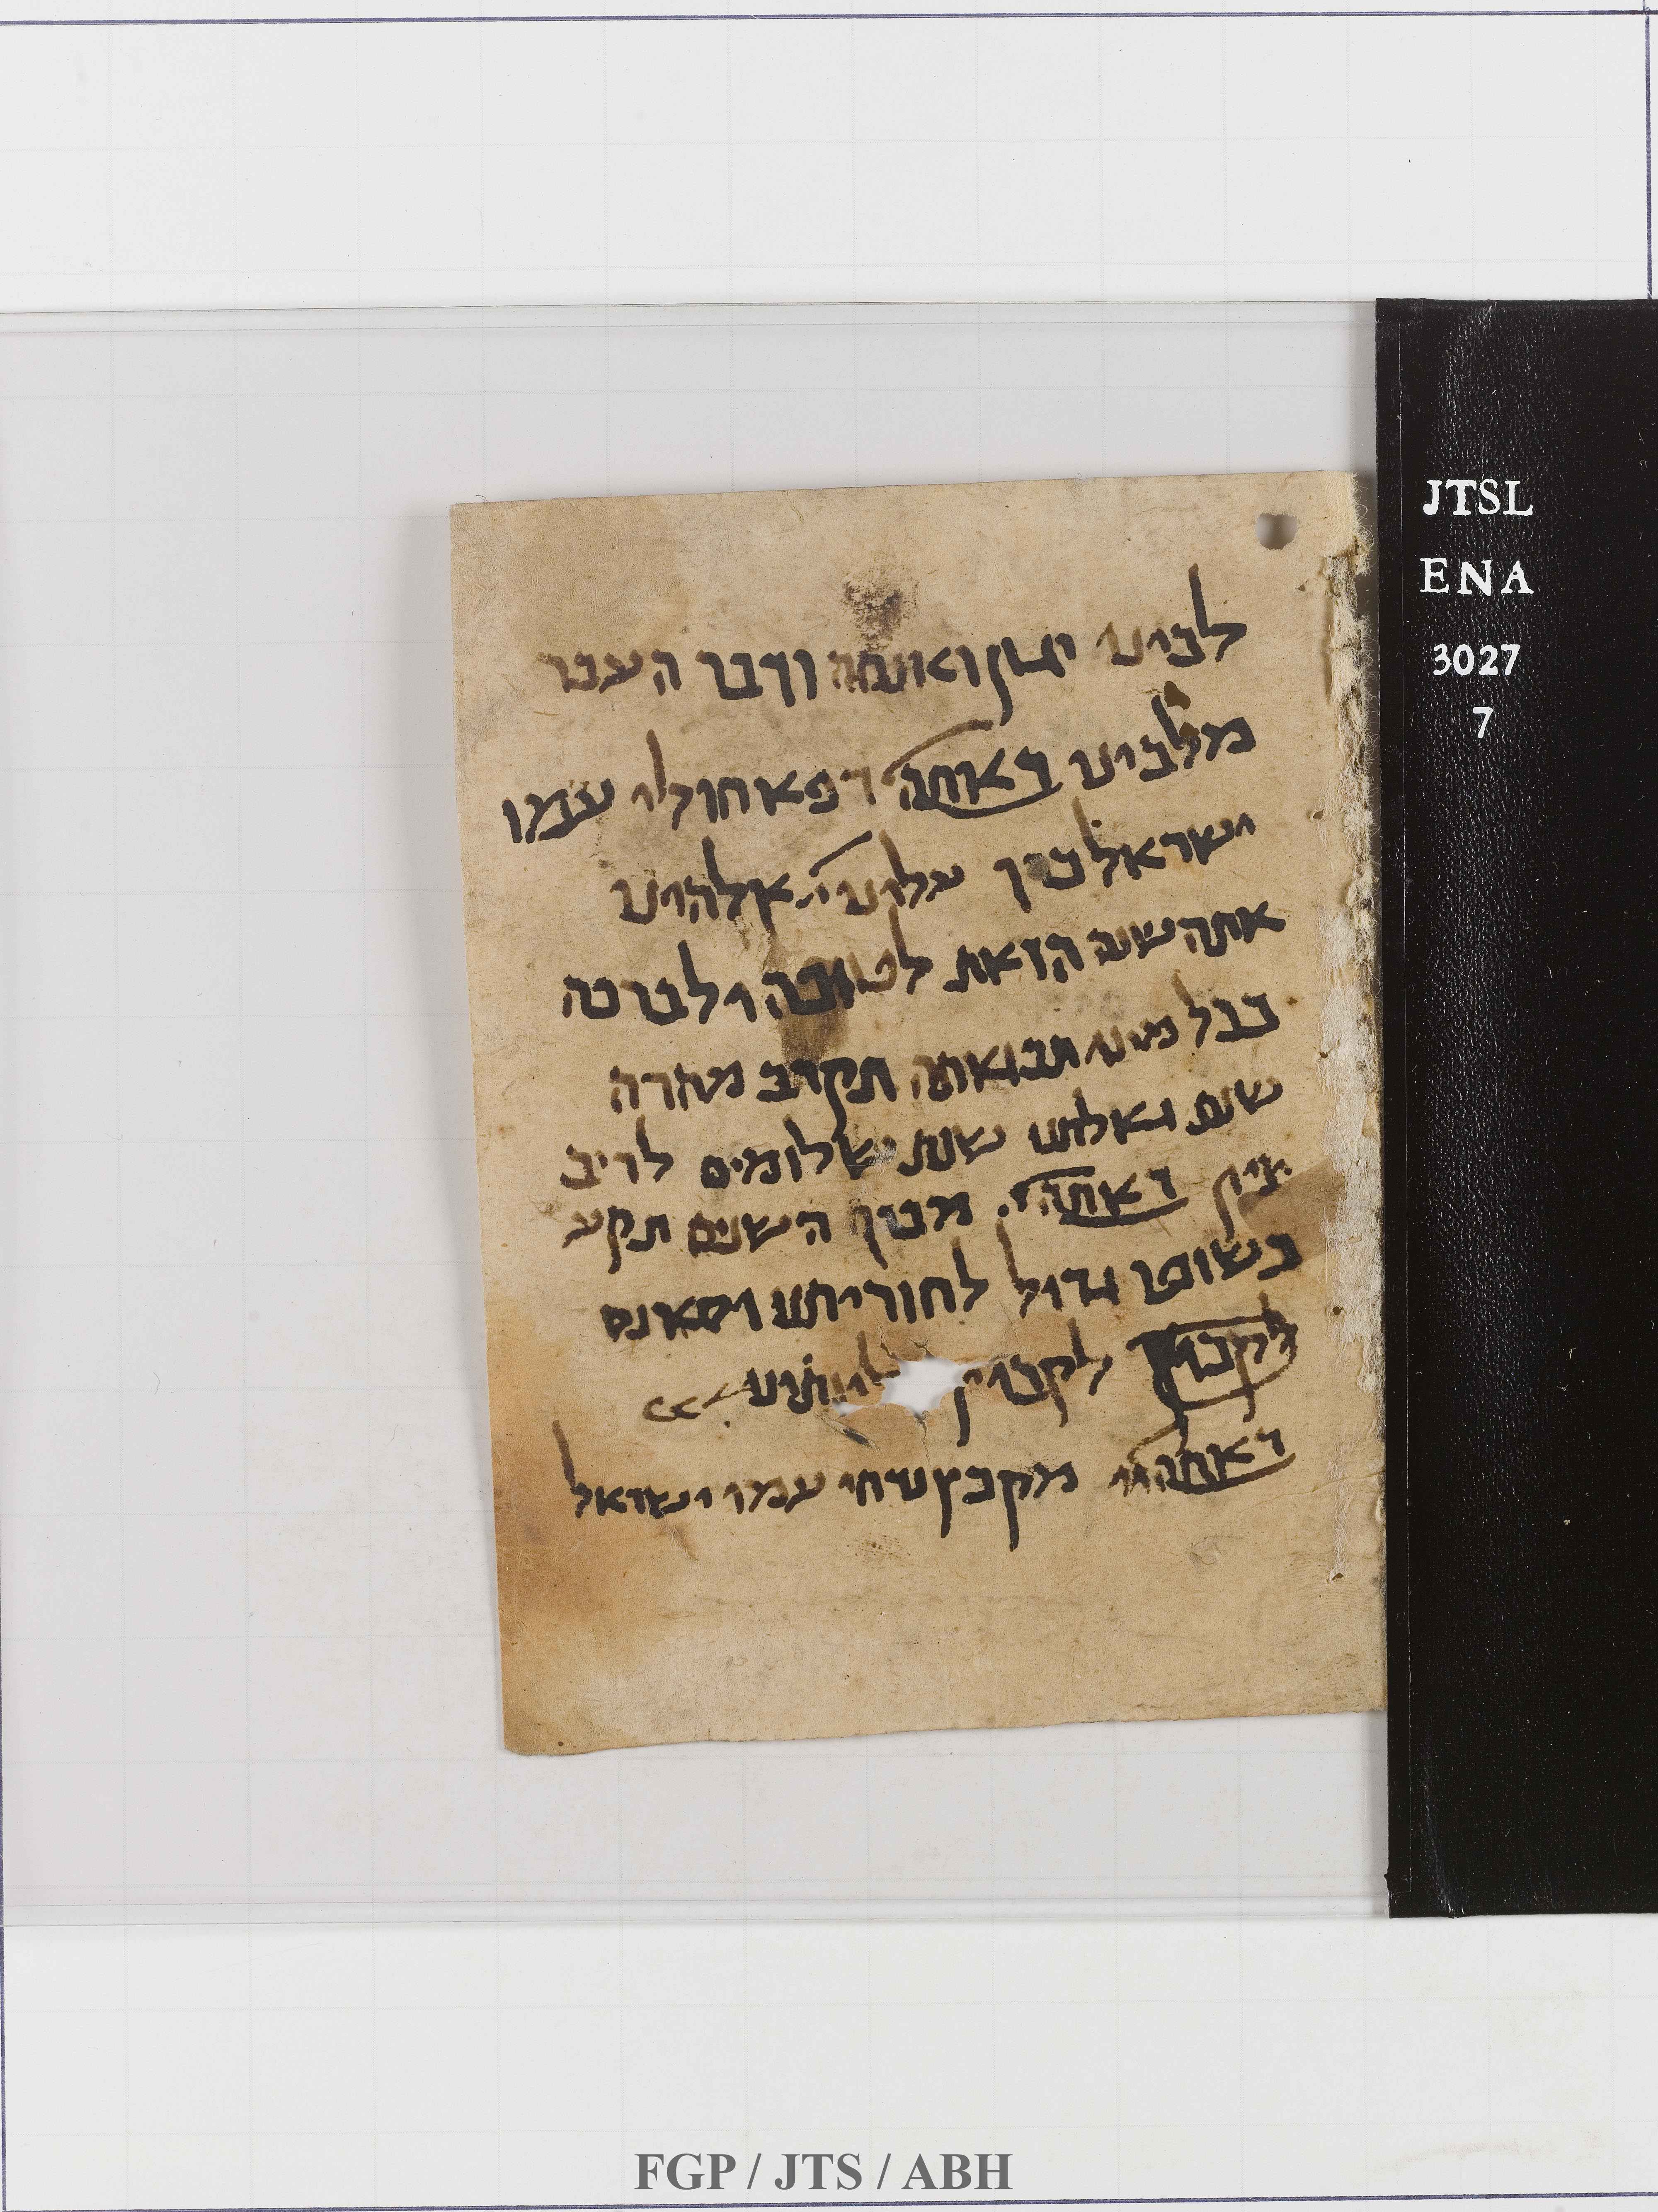 לבינו יגון ואנחה ודבר העבר
מלבינו באתה רפא חולי עמו
ישראל ברך עלינו יי אלהינו
אתהשנה הזאת לטובה ולברכה
בכל מיני תבואתה תקרב מהרה
שנת גאולתנו שנת שלומים לריב
ציון באתה יי מברך השנים תקע
בשופר גדול לחוריתנו וסא נס
לקבוץ לקבוץ
באתה יי מקבץ נדחי עמו ישראל
JTSL
ENA
3027
7
FGP / JTS / ABH